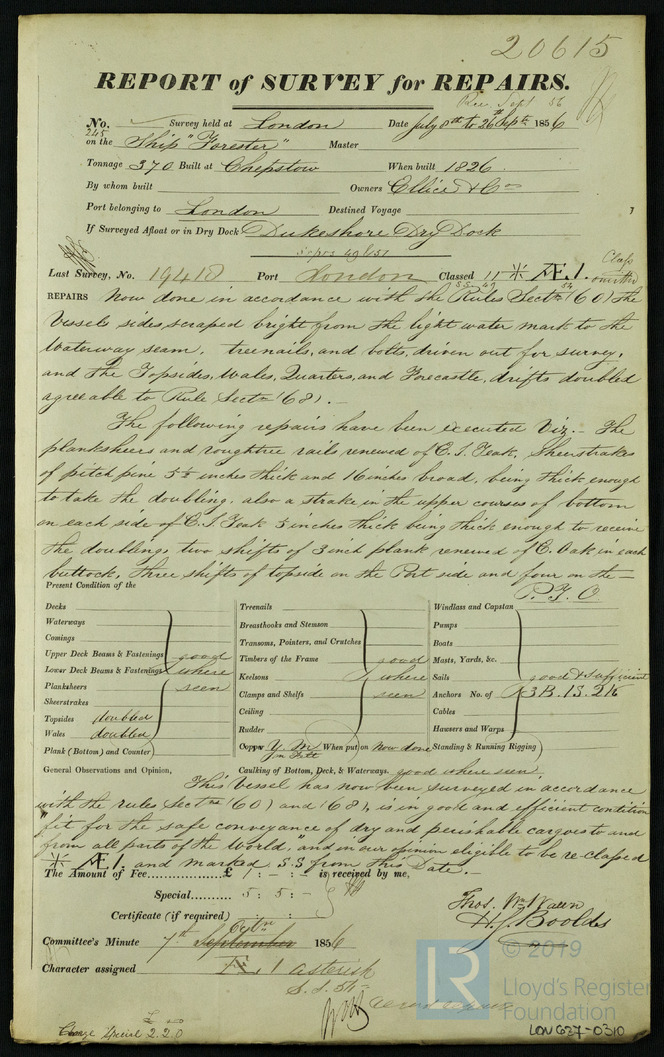 20615
REPORT of SURVEY for REPAIRS.
Rec. Sept 56
No. 245 Survey held at London Date July 8th to 26th Sepr. 1856
on the Ship "Forester" Master
Tonnage 370 Built at Chepstow When built 1826
By whom built Owners Ellice & Co
Port belonging to London Destined Voyage
If Surveyed Afloat or in Dry Dock Dukeshore Dry Dock
Last Survey, No. 19418 Port London Classed 11 Æ.1.
REPAIRS Now done in accordance with the Rules Sectn (60) the
Vessels sides, scraped bright from the light water mark to the
Waterway seam, treenails, and bolts, driven out for survey,
and the Topsides, Wales, Quarters, and Forecastle, drifts doubled
agreeable to Rule Sectn (68).—
The following repairs have been executed Viz.— The
planksheers and roughtree rails renewed of E. I. Teak, Sheerstrakes
of pitch pine 5½ inches thick and 16 inches broad, being thick enough
to take the doubling. also a strake in the upper courses of bottom
on each side of E. I. Teak 5 inches thick being thick enough to receive
the doubling, two shifts of 3 inch plank renewed of E. Oak in each
buttock, three shifts of topside on the Port side and four on the —
P.T.O.
Present Condition of the
Decks
Waterways
Comings
Upper Deck Beams & Fastenings good
Lower Deck Beams & Fastenings where
Planksheers seen
Sheerstrakes
Topsides doubled
Wales doubled
Plank (Bottom) and Counter
Treenails
Breasthooks and Stemson
Transoms, Pointers, and Crutches
Timbers of the Frame good
Keelsons where
Clamps and Shelfs seen
Ceiling
Rudder
Copper Y. M. on Felt When put on Now done
Windlass and Capstan
Pumps
Boats
Masts, Yards, &c.
Sails good & sufficient
Anchors No. of 3 B. 1 S. 2 K
Cables
Hawsers and Warps
Standing & Running Rigging
General Observations and Opinion, Caulking of Bottom, Deck, & Waterways. good where seen.
This Vessel has now been surveyed in accordance
with the rules Sectns (60) and (68), is in good and efficient condition
"fit for the safe conveyance of dry and perishable cargoes to and
from all parts of the World," and in our opinion eligible to be re-classed
Æ 1. and marked S.S from this Date.—
The Amount of Fee............... £ 1 : - : - is received by me,
Special.......... 5 : 5 : -
Certificate (if required) : :
Thos. Wm Wawn
H. J. Boolds
Committee's Minute 7th September Octbr 1856
Character assigned Æ 1 asterisk
Charge Special 2. 2. 0
© 2019
LR
Lloyd's Register
Foundation
LON637-0310